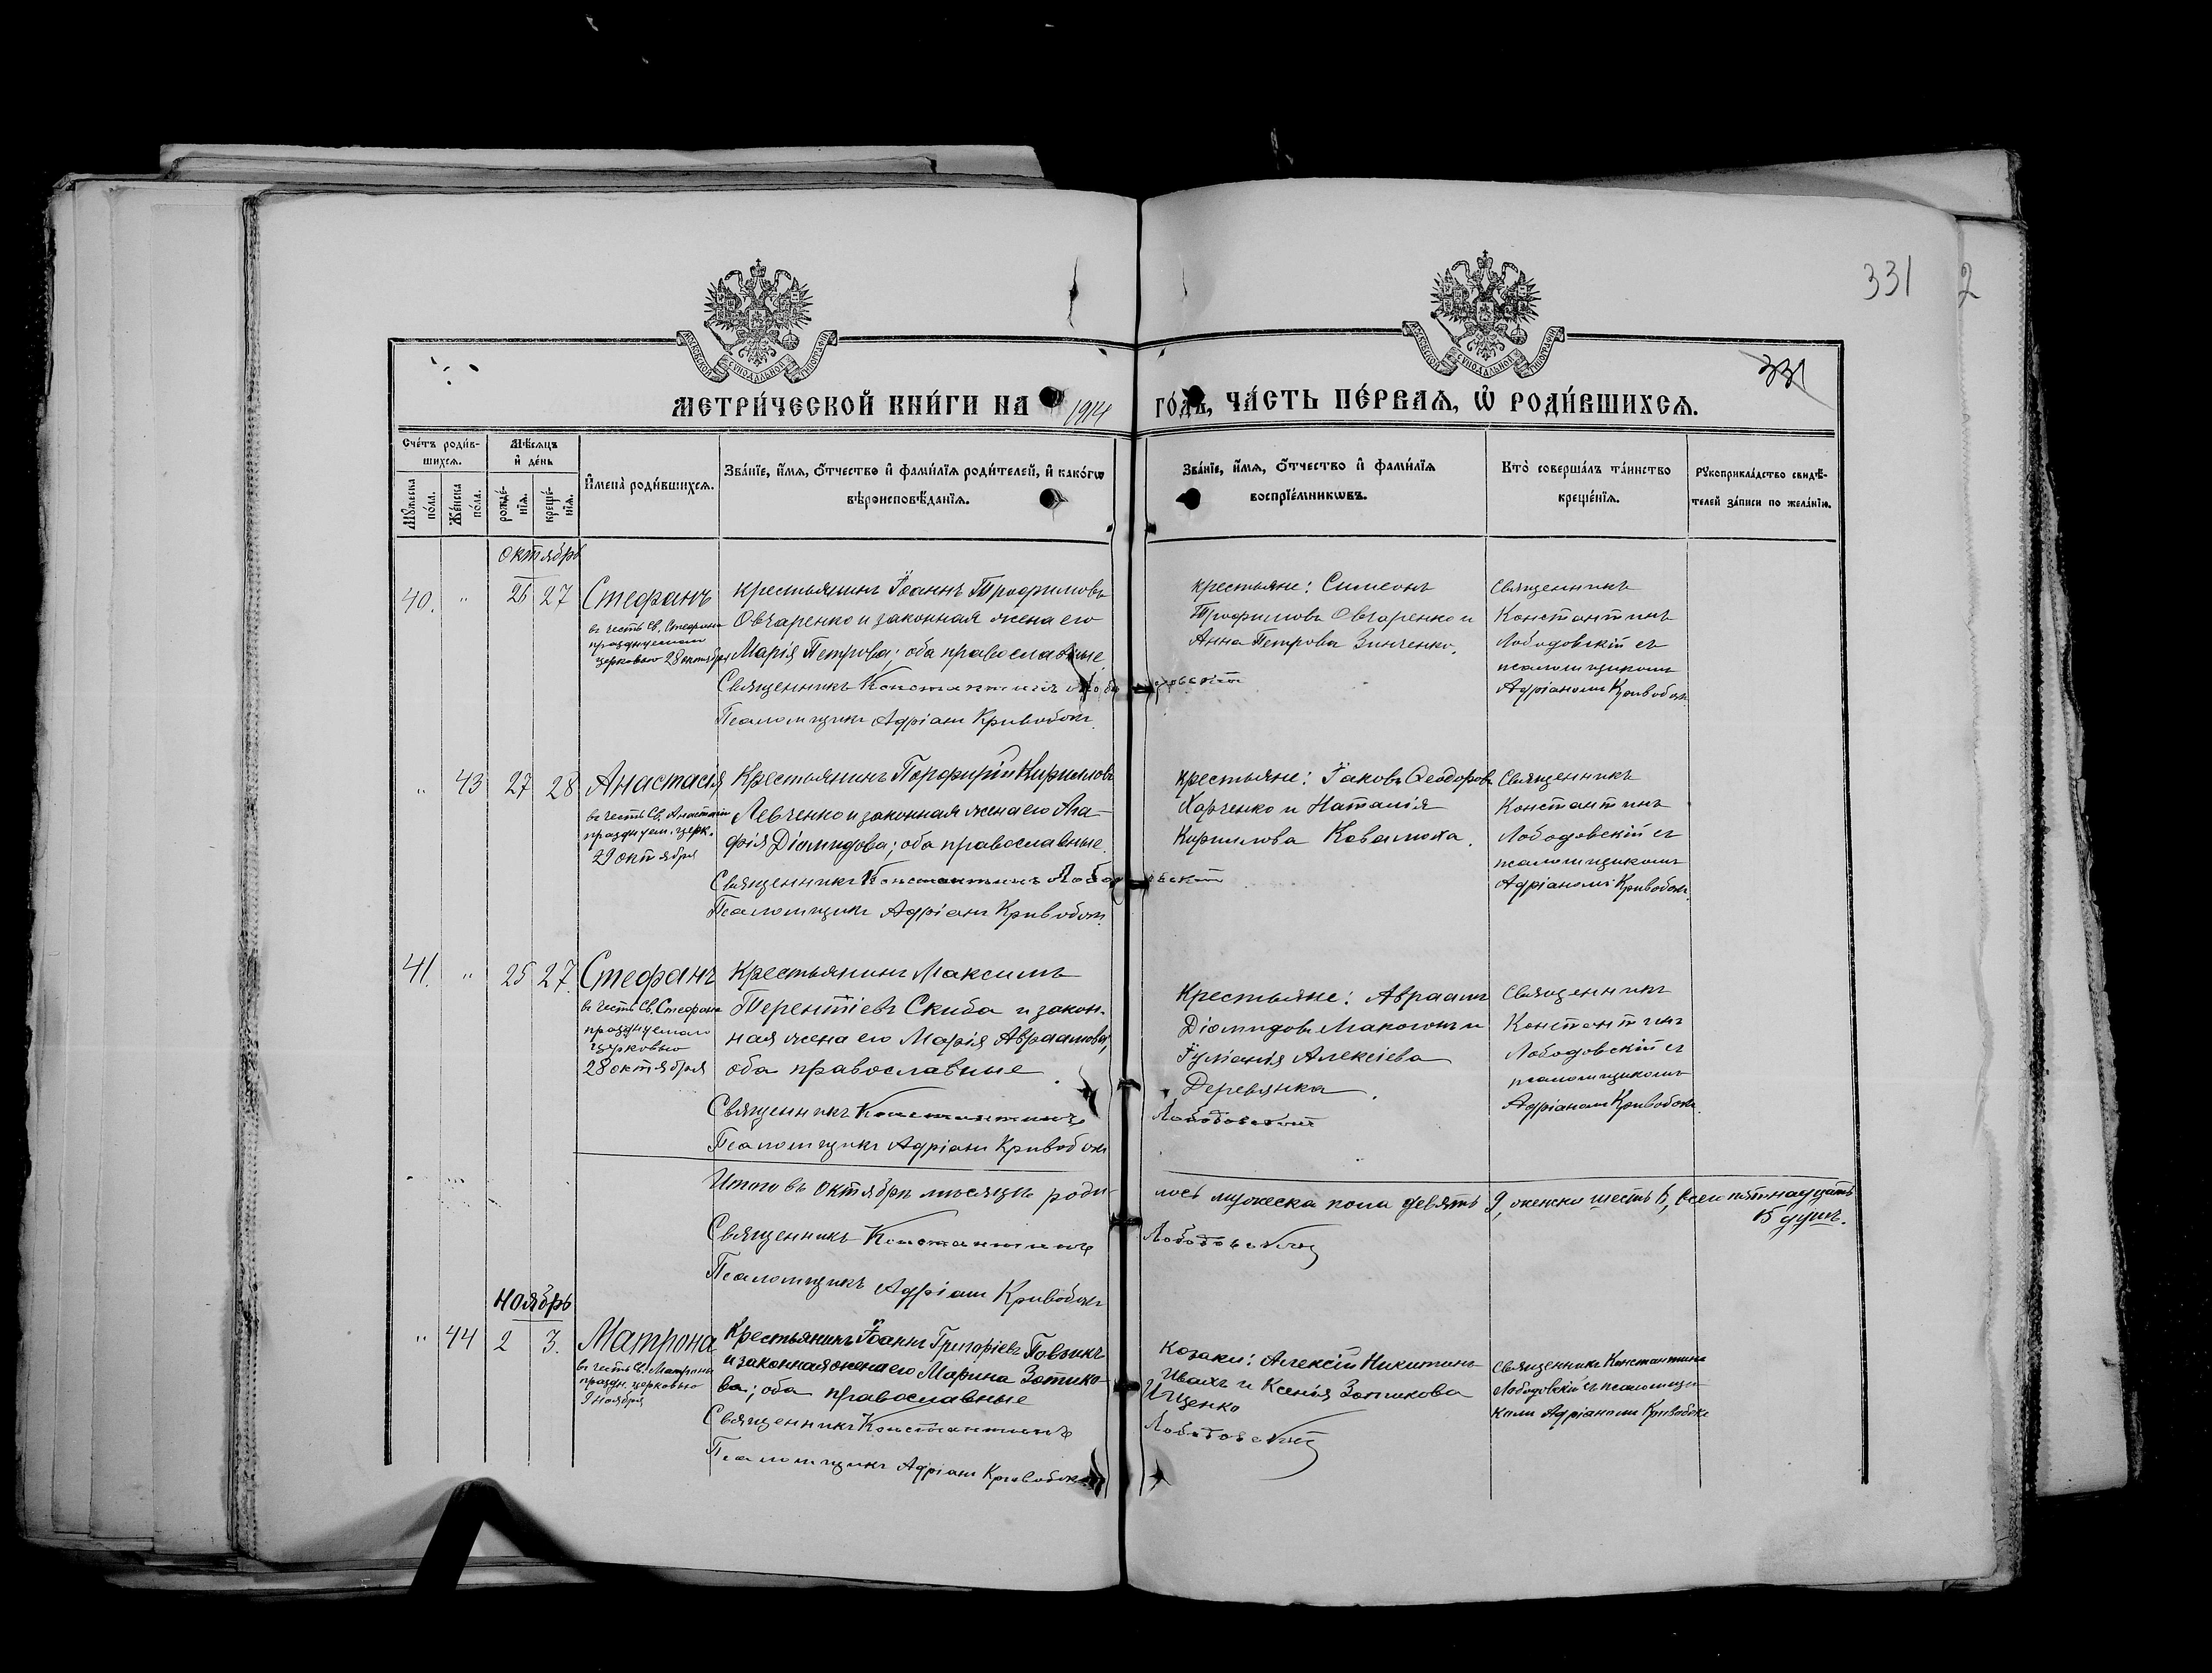 331 2
331
МОСКОВСКОЙ СѴНОДАЛЬНОЙ ТИПОГРАФІИ
МОСКОВСКОЙ СѴНОДАЛЬНОЙ ТИПОГРАФІИ
МЕТРИ́ЧЕСКОЙ КНИ́ГИ НА 1914 ГО́ДЪ, ЧА́СТЬ ПЕ́РВАѦ, Ѡ҆ РОДИ́ВШИХСѦ.
Сче́тъ роди́в-
шихсѧ.
Мꙋ́жеска по́ла.
Же́нска по́ла.
Мѣ́сѧцъ
и҆ де́нь
рожде́-
нїѧ.
креще́-
нїѧ.
И҆мена̀ роди́вшихсѧ.
Зва́нїе, и҆́мѧ, ѻ҆́тчество и҆ фами́лїѧ роди́телей, и҆ како́гѡ
вѣроисповѣ́данїѧ.
Зва́нїе, и҆́мѧ, ѻ҆́тчество и҆ фами́лїѧ
воспрїе́мникѡвъ.
Кто̀ соверша́лъ та́инство
креще́нїѧ.
Рꙋкоприкла́дство свидѣ́-
телей за́писи по жела́нїю.
октябрь
40. " 26 27 Стефанъ
въ честь Св. Стефана
празднуемаго
церковью 28 октября
Крестьянинъ Іоаннъ Трофимовъ
Овчаренко и законная жена его
Марія Петрова; оба православные.
Священникъ Константинъ Лободовскій
Псаломщикъ Адріанъ Кривобокъ.
Крестьяне: Симеонъ
Трофимовъ Овчаренко и
Анна Петрова Зинченко.
Священникъ
Константинъ
Лободовскій съ
псаломщикомъ
Адріаномъ Кривобок.
" 43 27 28 Анастасія
въ честь Св. Анастасіи
празднуем. церк.
29 октября
Крестьянинъ Порфирій Кирилловъ
Левченко и законная жена его Ага-
фія Діомидова; оба православные.
Священникъ Константинъ Лободовскій
Псаломщикъ Адріанъ Кривобокъ
Крестьяне: Іаковъ Ѳеодоровъ
Харченко и Наталія
Кириллова Ковалюха.
Священникъ
Константинъ
Лободовскій съ
псаломщикомъ
Адріаномъ Кривобок.
41. " 25 27. Стефанъ
въ честь Св. Стефана
празднуемаго
церковью
28 октября
Крестьянинъ Максимъ
Терентіевъ Скиба и закон-
ная жена его Марія Авраамова,
оба православные.
Священникъ Константинъ Лободовскій
Псаломщикъ Адріанъ Кривобокъ
Крестьяне: Авраамъ
Діомидовъ Макогонъ и
Іуліанія Алексіева
Деревянка.
Священникъ
Константинъ
Лободовскій съ
псаломщикомъ
Адріаномъ Кривобок.
Итого въ октябрѣ мѣсяцѣ роди-
лось мужеска пола девять 9, женска шесть 6, всего пятнадцать
15 душъ.
Священникъ Константинъ Лободовскій
Псаломщикъ Адріанъ Кривобокъ
Ноябрь
" 44 2 3. Матрона
въ честь Св. Матроны
праздн. церковью
9 ноября
Крестьянинъ Іоаннъ Григоріевъ
и законная жена его Марина Зотико-
ва; оба православные
Священникъ Константинъ Лободовскій
Псаломщикъ Адріанъ Кривобокъ
Козаки: Алексій Никитинъ
Ивахъ и Ксенія Зотикова
Ищенко
Священникъ Константинъ
Лободовскій съ псаломщи-
комъ Адріаномъ Кривобокъ